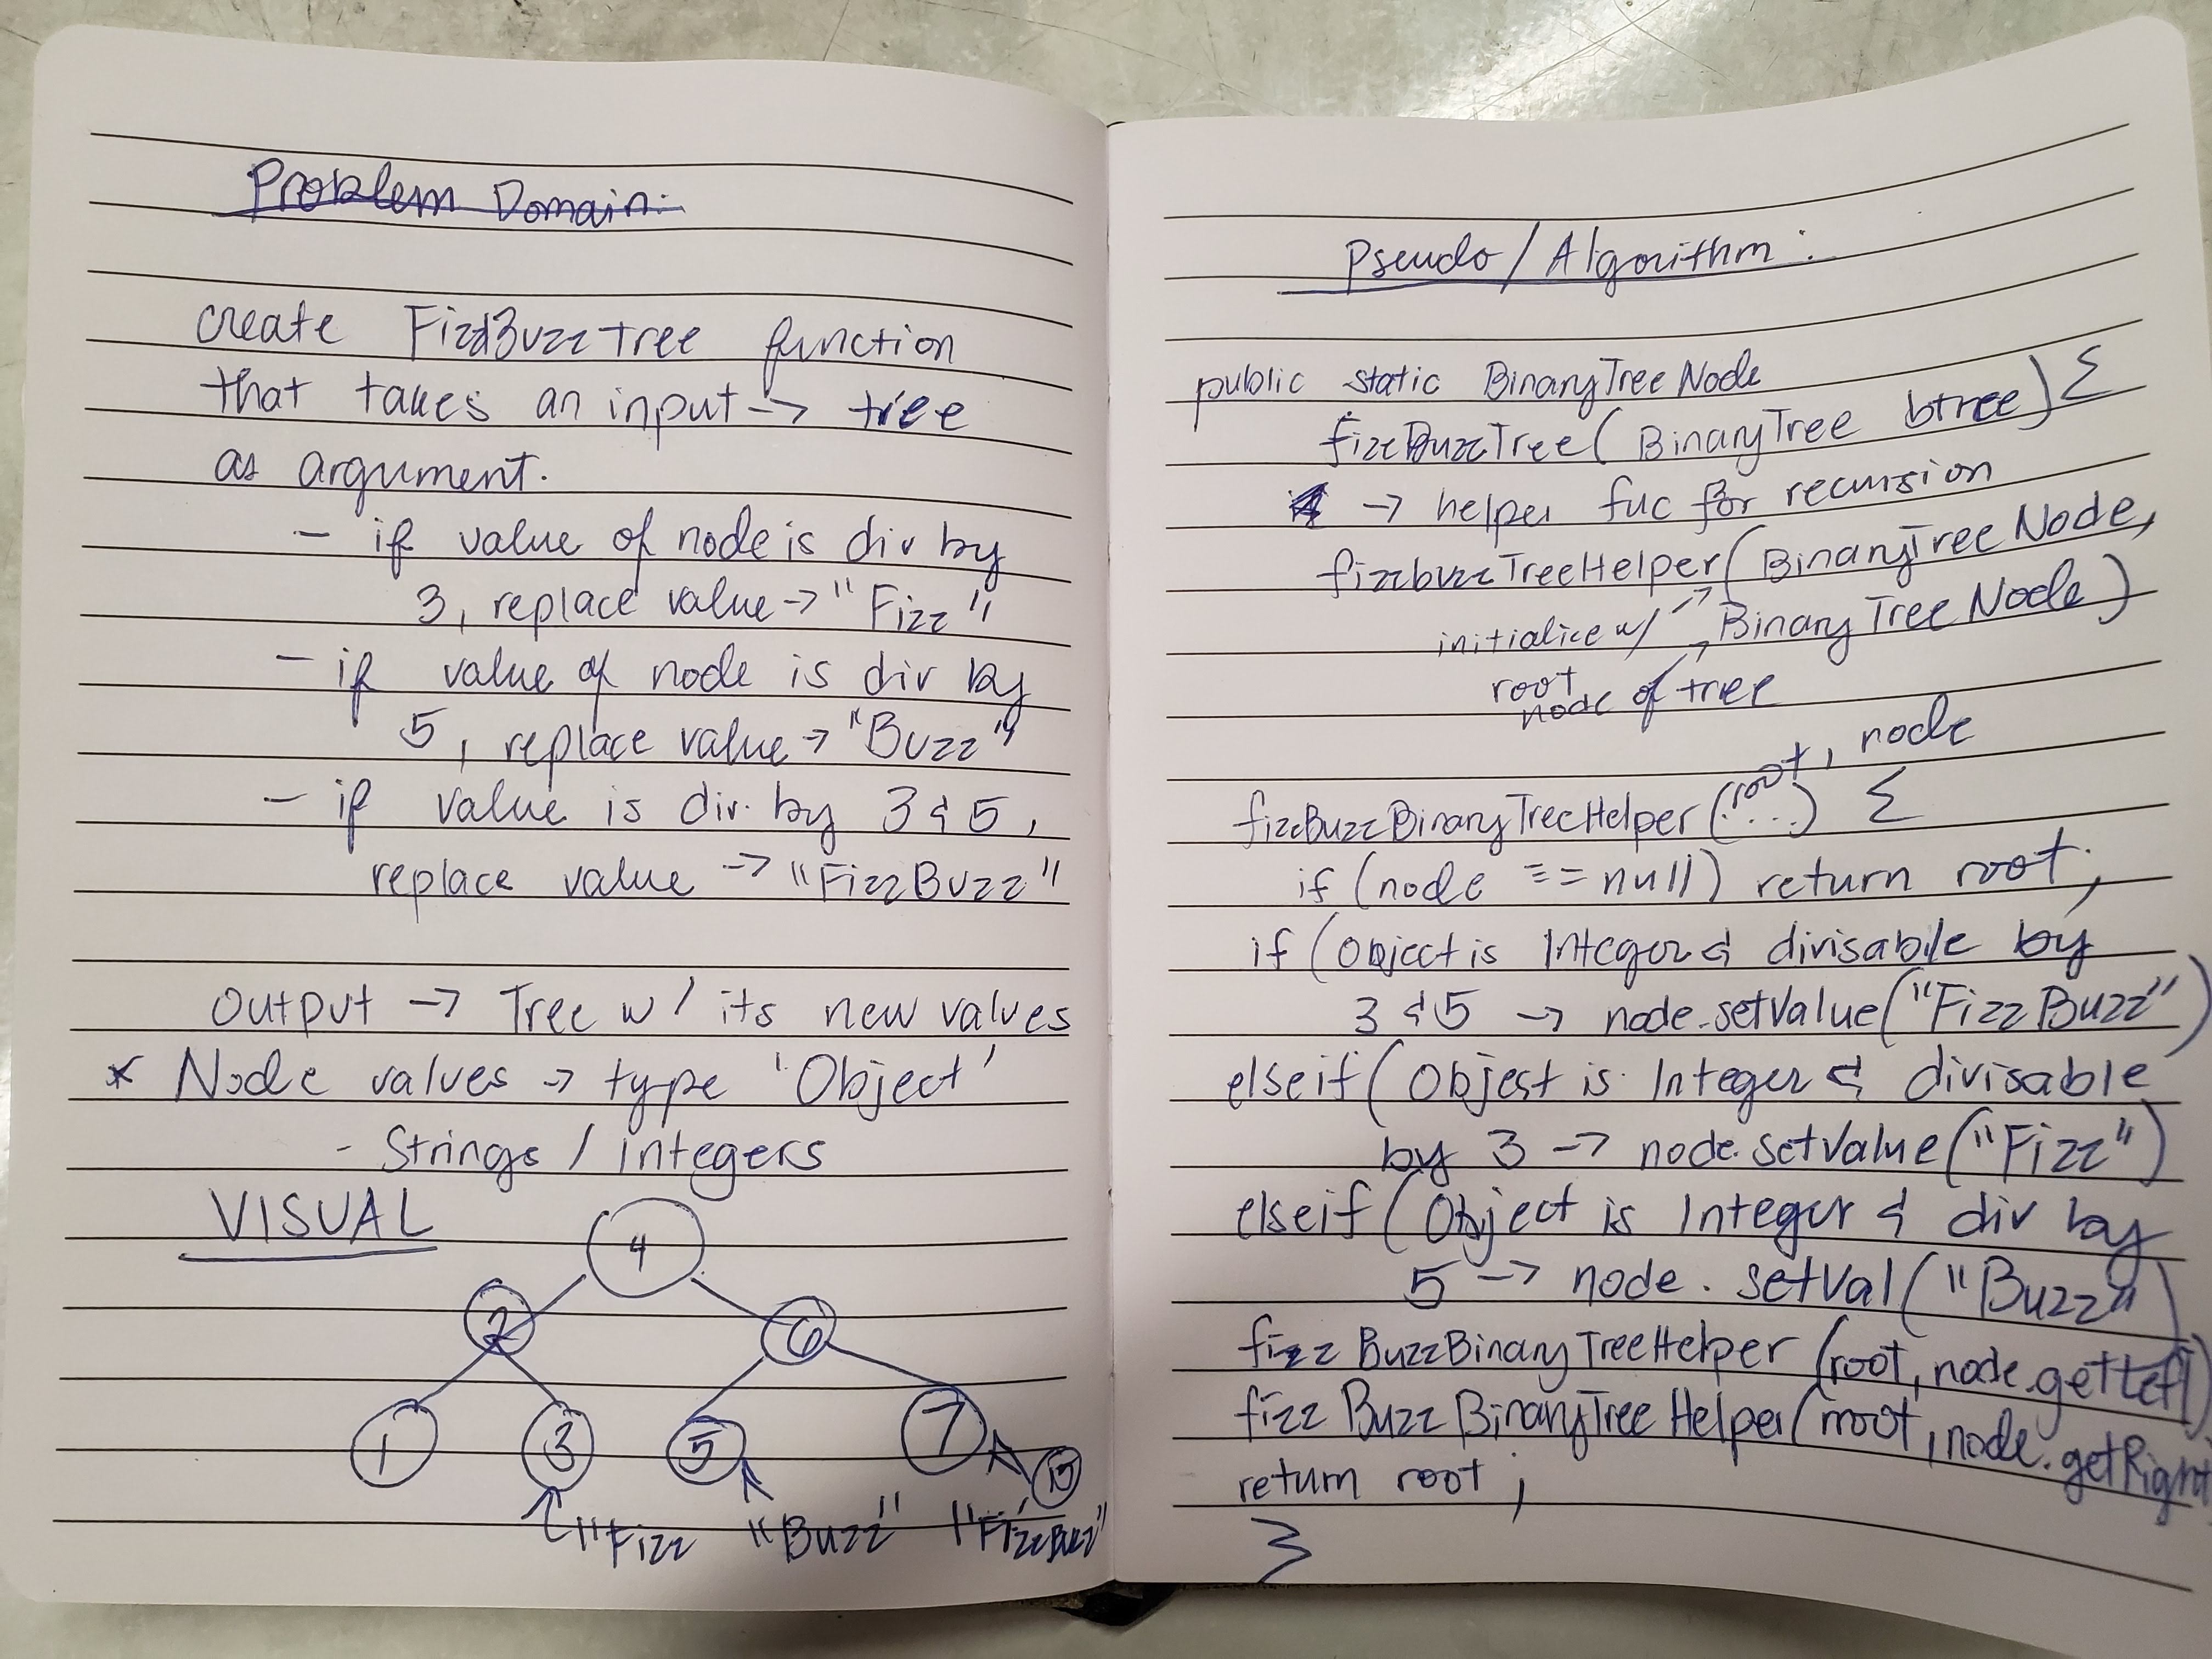 Problem Domain:
create FizzBuzzTree function
that takes an input -> tree
as argument.
- if value of node is div by
3, replace value -> "Fizz"
- if value of node is div by
5, replace value -> "Buzz"
- if value is div. by 3 & 5,
replace value -> "FizzBuzz"
Output -> Tree w/ its new values
* Node values -> type 'Object'
- Strings / integers
VISUAL
4
2 6
1 3 5 7
15
"Fizz "Buzz" "FizzBuzz"
Pseudo / Algorithm:
public static BinaryTreeNode
fizzBuzzTree( BinaryTree btree) {
-> helper fuc for recursion
fizzbuzzTreeHelper( BinaryTreeNode,
initialize w/ BinaryTreeNode)
root
node of tree
fizzBuzzBinaryTreeHelper(root, node
....) {
if (node === null) return root;
if (Object is Integer & divisable by
3 & 5 -> node.setValue("FizzBuzz")
elseif (Object is Integer & divisable
by 3 -> node.setValue("Fizz")
elseif (Object is Integer & div by
5 -> node.setVal("Buzz")
fizzBuzzBinaryTreeHelper(root, node.getLeft)
fizzBuzzBinaryTreeHelper(root, node.getRight
return root;
}